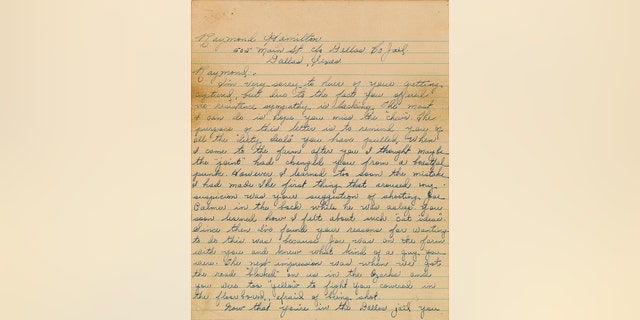 Raymond Hamilton
505 Main St c/o Dallas Co Jail
Dallas, Texas
Raymond:
I'm very sorry to hear of your getting
captured, but due to the fact you offered
no resistance sympathy is lacking. The most
I can do is hope you miss the chair. The
purpose of this letter is to remind you of
all the "dirty deals" you have pulled. When
I came to the farm after you I thought maybe
the "joint" had changed you from a boastful
punk. However I learned too soon the mistake
I had made. The first thing that aroused my
suspicion was your suggestion of shooting Joe
Palmer in the back while he was asleep. You
soon learned how I felt about such "cat ideas"
Since then I've found your reasons for wanting
to do this was because Joe was on the farm
with you and knew what kind of a guy you
were. The next impression was when we got
the road "blocked" on us in the Ozarks and
you were too "yellow" to fight you cowered in
the floorboard, afraid of being shot.
Now that you're in the Dallas jail you